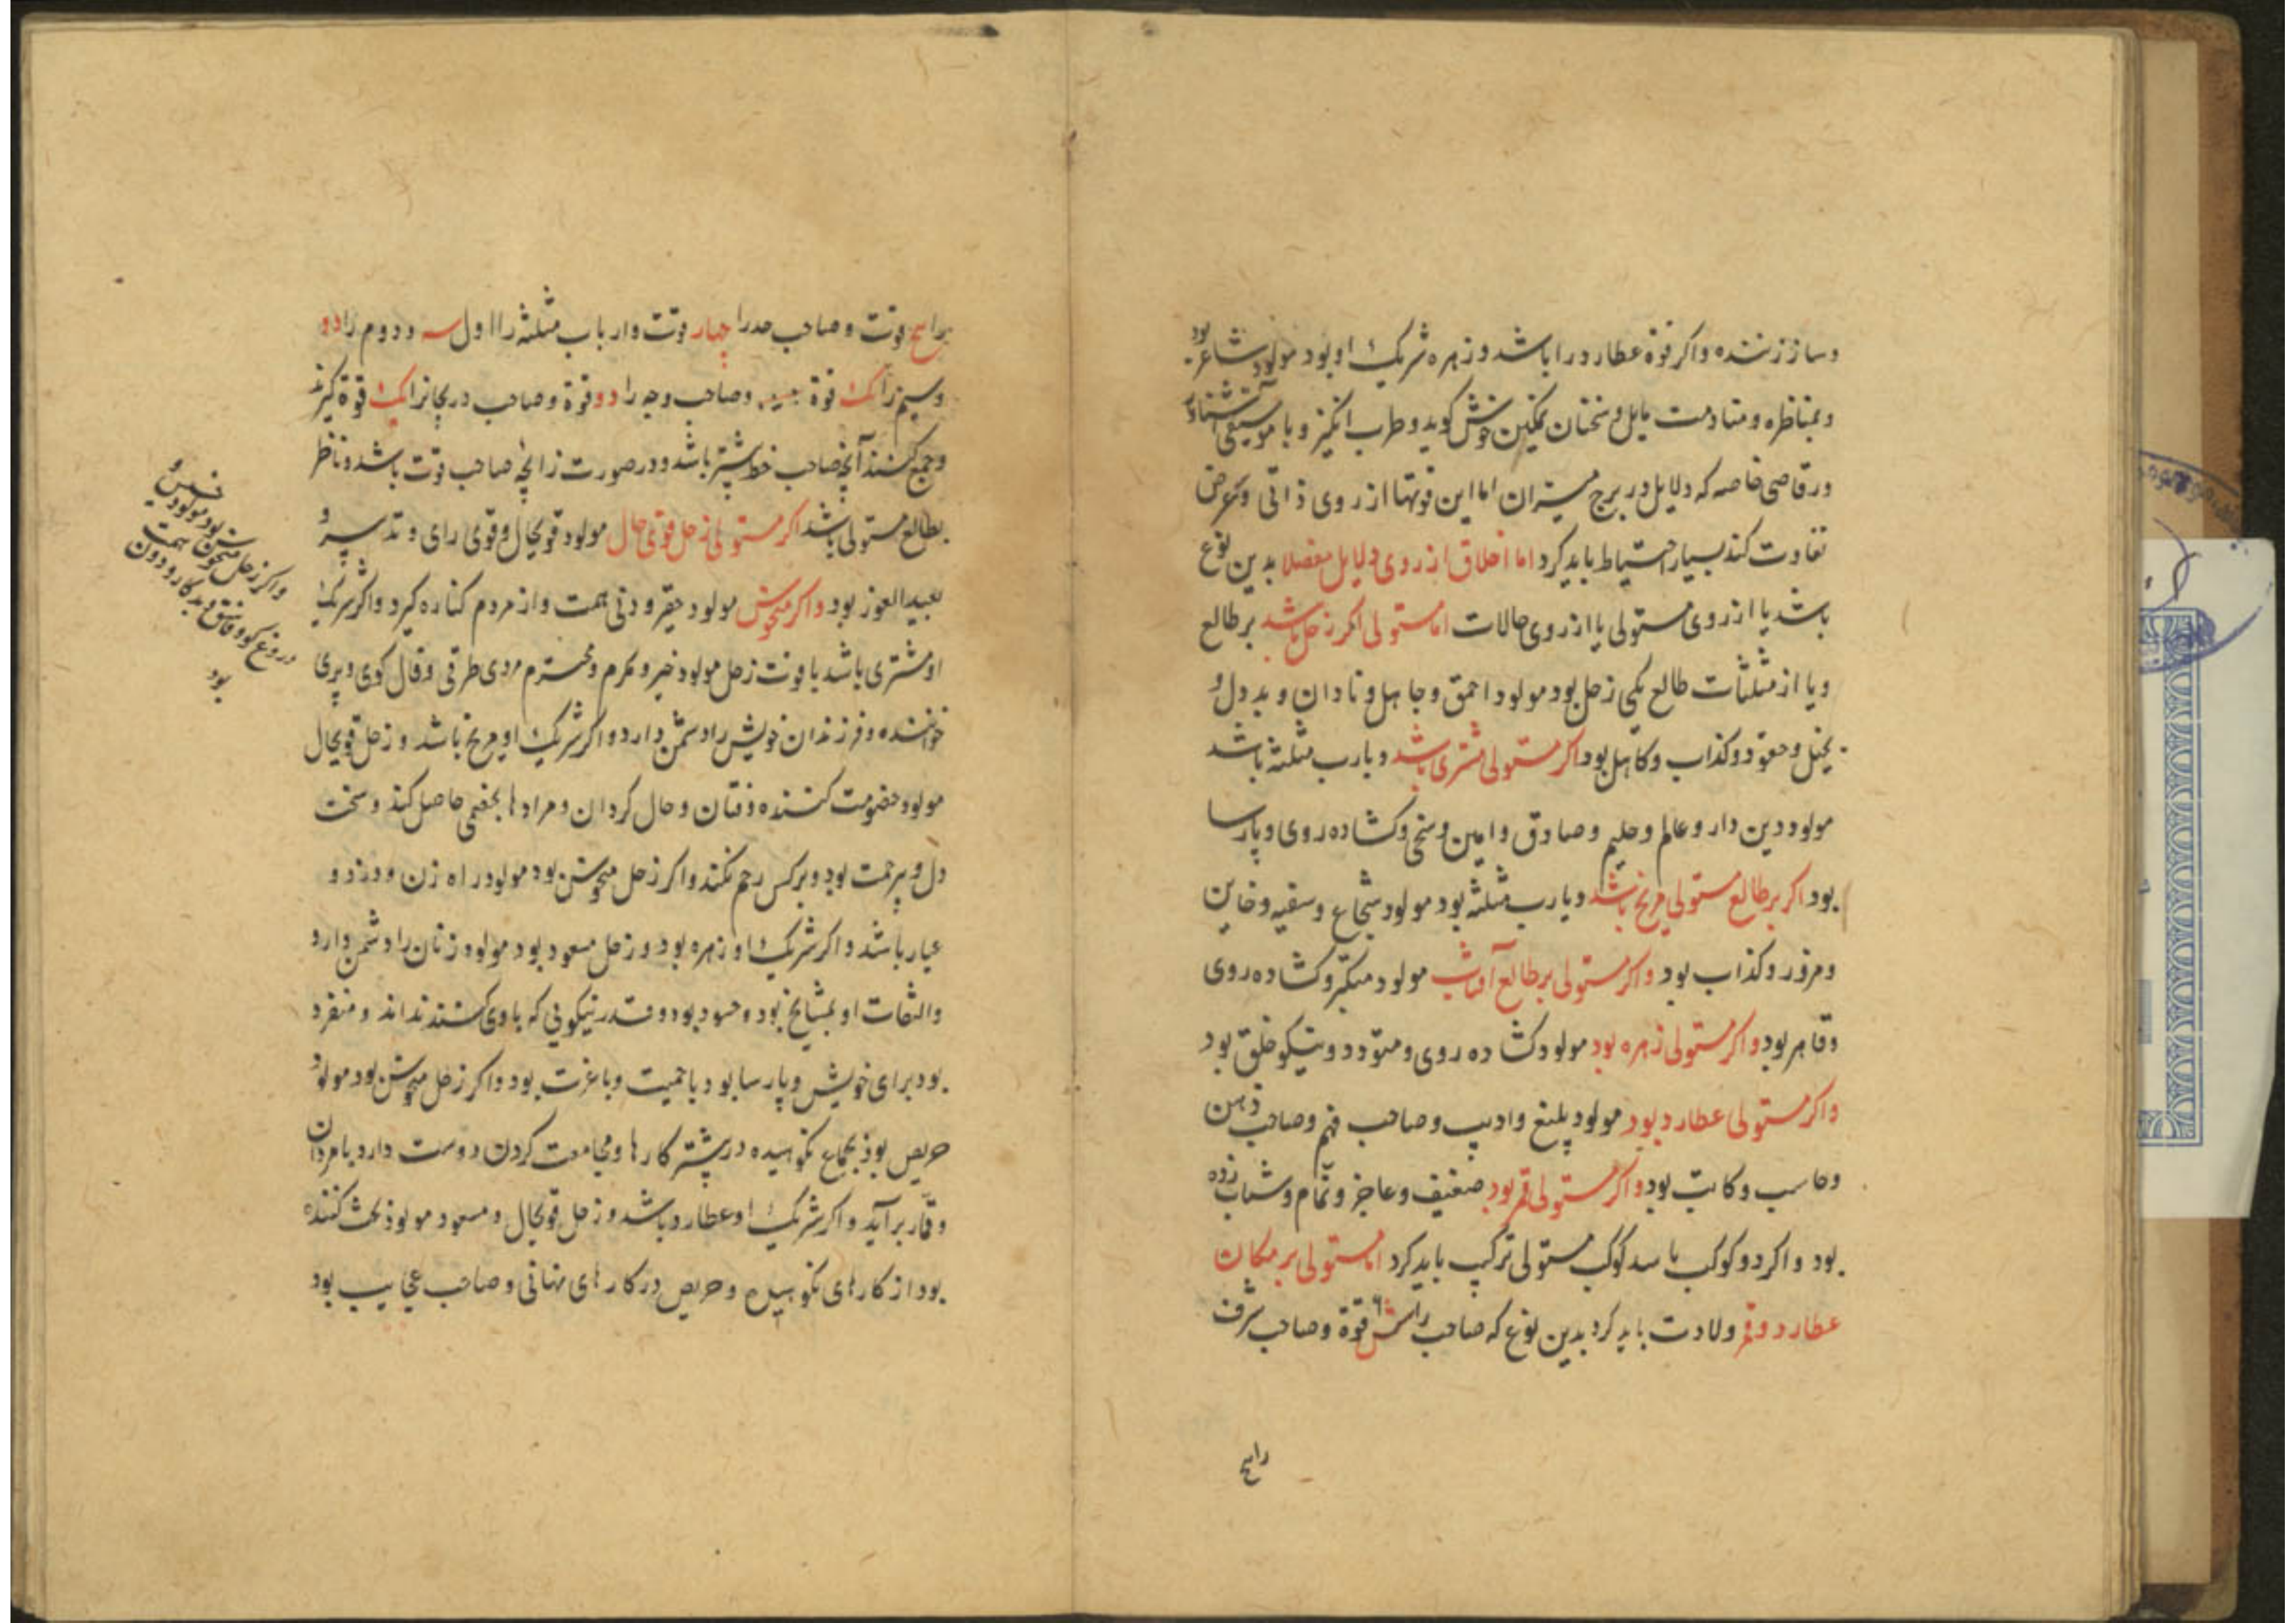 وساز زننده واکر قوة عطارد را باشد و زهره شریک او بود مولود شاعر بود
و بمناظره و منادمت مایل و سخنان نمکین خوش کوید و طرب انکیز و با موسیقی آشنا و
ورقاصی خاصه که دلایل در برج میزان اما این قوتها از روی ذاتی و عرضی
تفاوت کند بسیار احتیاط باید کرد اما اخلاق از روی دلایل مفصلا بدین نوع
باشد یا از روی مستولی یا از روی حالات اما مستولی اکر زحل باشد بر طالع
ویا از مثلثات طالع یکی زحل بود مولود احمق و جاهل و نادان و بد دل و
بخیل و حقود و کذاب و کاهل بود اکر مستولی مشتری باشد و یا رب مثلثه باشد
مولود دین دار و عالم و حلیم و صادق و امین و سخی و کشاده روی و پارسا
بود اکر بر طالع مستولی مریخ باشد و یا رب مثلثه بود مولود شجاع و سفیه و خاین
ومزور و کذاب بود واکر مستولی بر طالع آفتاب مولود متکبر و کشاده روی
وقاهر بود واکر مستولی زهره بود مولود کشاده روی و متودد و نیکو خلق بود
واکر مستولی عطارد بود مولود بلیغ و ادیب و صاحب فهم و صاحب ذهن
وحاسب و کاتب بود واکر مستولی قمر بود ضعیف و عاجز و نمام و شتاب زده
بود واکر دو کوکب یا سه کوکب مستولی ترکیب باید کرد اما مستولی بر مکان
عطارد و قمر ولادت باید کرد بدین نوع که صاحب را شش قوة و صاحب شرف
را پنج
را پنج قوت و صاحب حد را چهار قوت و ارباب مثلثه را اول سه و دوم را دو
وسیم را یک قوة و صاحب وجه را دو قوة و صاحب دریجانرا یک قوة کیرند
وجمع کنند آنچه صاحب خط بیشتر باشد و در صورت زایچه صاحب قوت باشد و ناظر
بطالع مستولی باشد اکر مستولی زحل قوی حال مولود قویحال و قوی رای و تدبیر و
بعید الغور بود واکر منحوس مولود حقیر و دنی همت و از مردم کناره کیرد و اکر شریک
او مشتری باشد با قوت زحل مولود خیر و مکرم و محترم مردی طرقی و فال کوی و پری
خواننده و فرزندان خویش را دشمن دارد و اکر شریک او مریخ باشد و زحل قویحال
مولود خصومت کننده و فتان و حال کردان و مرادها بخصمی حاصل کند و سخت
دل و بیرحمت بود و بر کس رحم نکند و اکر زحل منحوس بود مولود راه زن و دزد و
عیار باشد و اکر شریک او زهره بود و زحل مسعود بود مولود زنان را دشمن دارد
والتفات او بمشایخ بود و حسود بود و قدر نیکویی که با وی کنند نداند و منفرد
بود برای خویش و پارسا بود با حمیت و با عزت بود و اکر زحل منحوس بود مولود
حریص بود بجماع نکوهیده در بیشتر کارها و مجامعت کردن دوست دارد با مردان
وقار برآید و اکر شریک او عطارد باشد و زحل قویحال و مسعود مولود بحث کننده
بود از کارهای نکوهیده و حریص در کارهای نهانی و صاحب عجایب بود
واکر زحل منحوس بود مولود خسیس و
دروغ کو و فاسق و بد کار و دون همت
بود